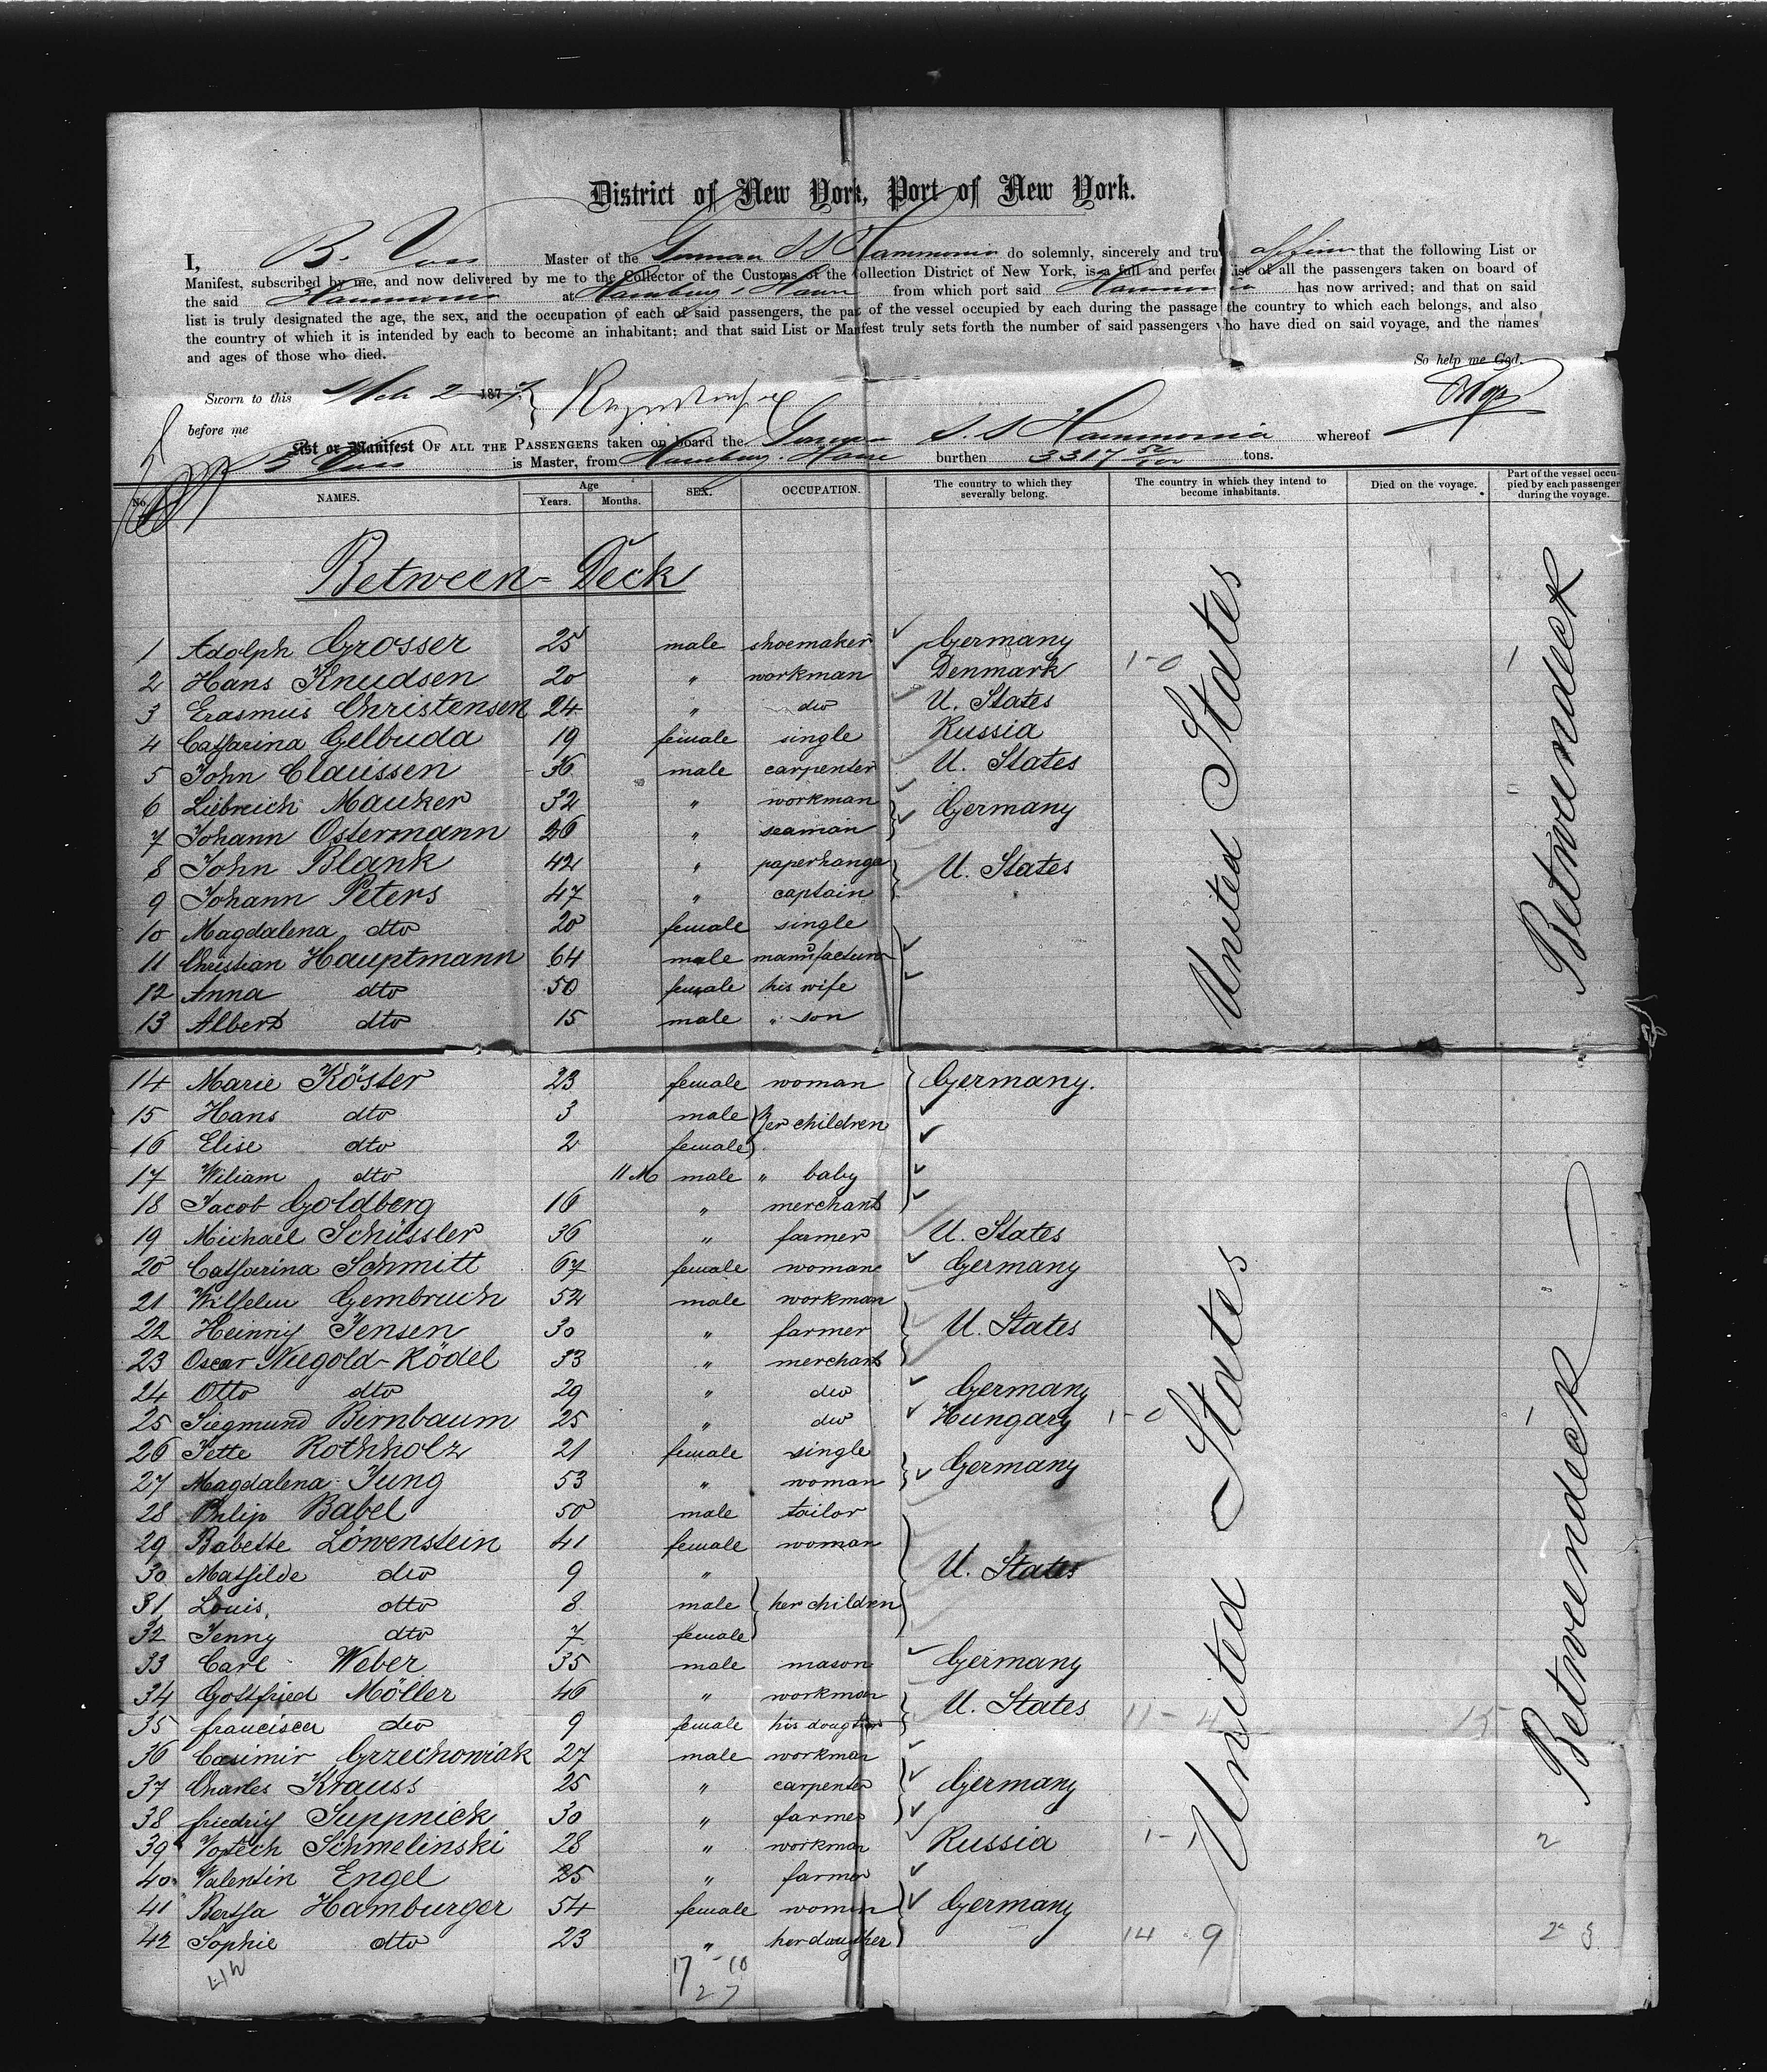 District of New York, Port of New York.
I, B. Voss Master of the German SS Hammonia do solemnly, sincerely and tru affirm that the following List or
Manifest, subscribed by me, and now delivered by me to the Collector of the Customs of the Collection District of New York, is a full and perfect list of all the passengers taken on board of
the said Hammonia at Hamburg, Havre from which port said Hammonia has now arrived; and that on said
list is truly designated the age, the sex, and the occupation of each of said passengers, the part of the vessel occupied by each during the passage the country to which each belongs, and also
the country of which it is intended by each to become an inhabitant; and that said List or Manifest truly sets forth the number of said passengers who have died on said voyage, and the names
and ages of those who died.
So help me God.
Sworn to this Mch 2 1877
before me
List or Manifest OF ALL THE PASSENGERS taken on board the German S.S Hammonia whereof
B Voss is Master, from Hamburg. Havre burthen 3317 tons.
No. NAMES. Age Years. Months. SEX. OCCUPATION. The country to which they severally belong. The country in which they intend to become inhabitants. Died on the voyage. Part of the vessel occupied by each passenger during the voyage.
Between-Deck
United States
Betweendeck
1 Adolph Grosser 25 male shoemaker Germany
2 Hans Knudsen 20 " workman Denmark 1-0 1
3 Erasmus Christensen 24 " dto U. States
4 Catharina Gelbuda 19 female single Russia
5 John Claussen 36 male carpenter U. States
6 Liebreich Mauker 32 " workman Germany
7 Johann Ostermann 26 " seaman
8 John Blank 42 " paperhange U. States
9 Johann Peters 47 " captain
10 Magdalena dto 20 female single
11 Christian Hauptmann 64 male manufacturer
12 Anna dto 50 female his wife
13 Albert dto 15 male " son
14 Marie Köster 23 female woman Germany.
15 Hans dto 3 male her children
16 Elise dto 2 female
17 Wiliam dto 11 M male " baby
18 Jacob Goldberg 16 " merchant
19 Michael Schüssler 36 " farmer U. States
20 Catharina Schmitt 67 female woman Germany
21 Wilhelm Gembruch 52 male workman
22 Heinrich Jensen 30 " farmer U. States
23 Oscar Niegold-Rödel 33 " merchant
24 Otto dto 29 " dto Germany
25 Siegmund Birnbaum 25 " dto Hungary 1-0 1
26 Jette Rothholz 21 female single Germany
27 Magdalena Jung 53 " woman
28 Philip Babel 50 male tailor
29 Babette Löwenstein 41 female woman
30 Mathilde dto 9 " U. States
31 Louis dto 8 male her children
32 Jenny dto 7 female
33 Carl Weber 35 male mason Germany
34 Gottfried Möller 46 " workman U. States 11-4 15
35 francisca dto 9 female his dougther
36 Casimir Grzechowiak 27 male workman
37 Charles Krauss 25 " carpenter Germany
38 friedrich Suppnick 30 " farmer
39 Voptech Schmelinski 28 " workman Russia 1-1 2
40 Valentin Engel 25 " farmer
41 Bertha Hamburger 54 female women Germany
42 Sophie dto 23 " her daugther 14 9 2 3
United States
Betweendeck
17-10
27